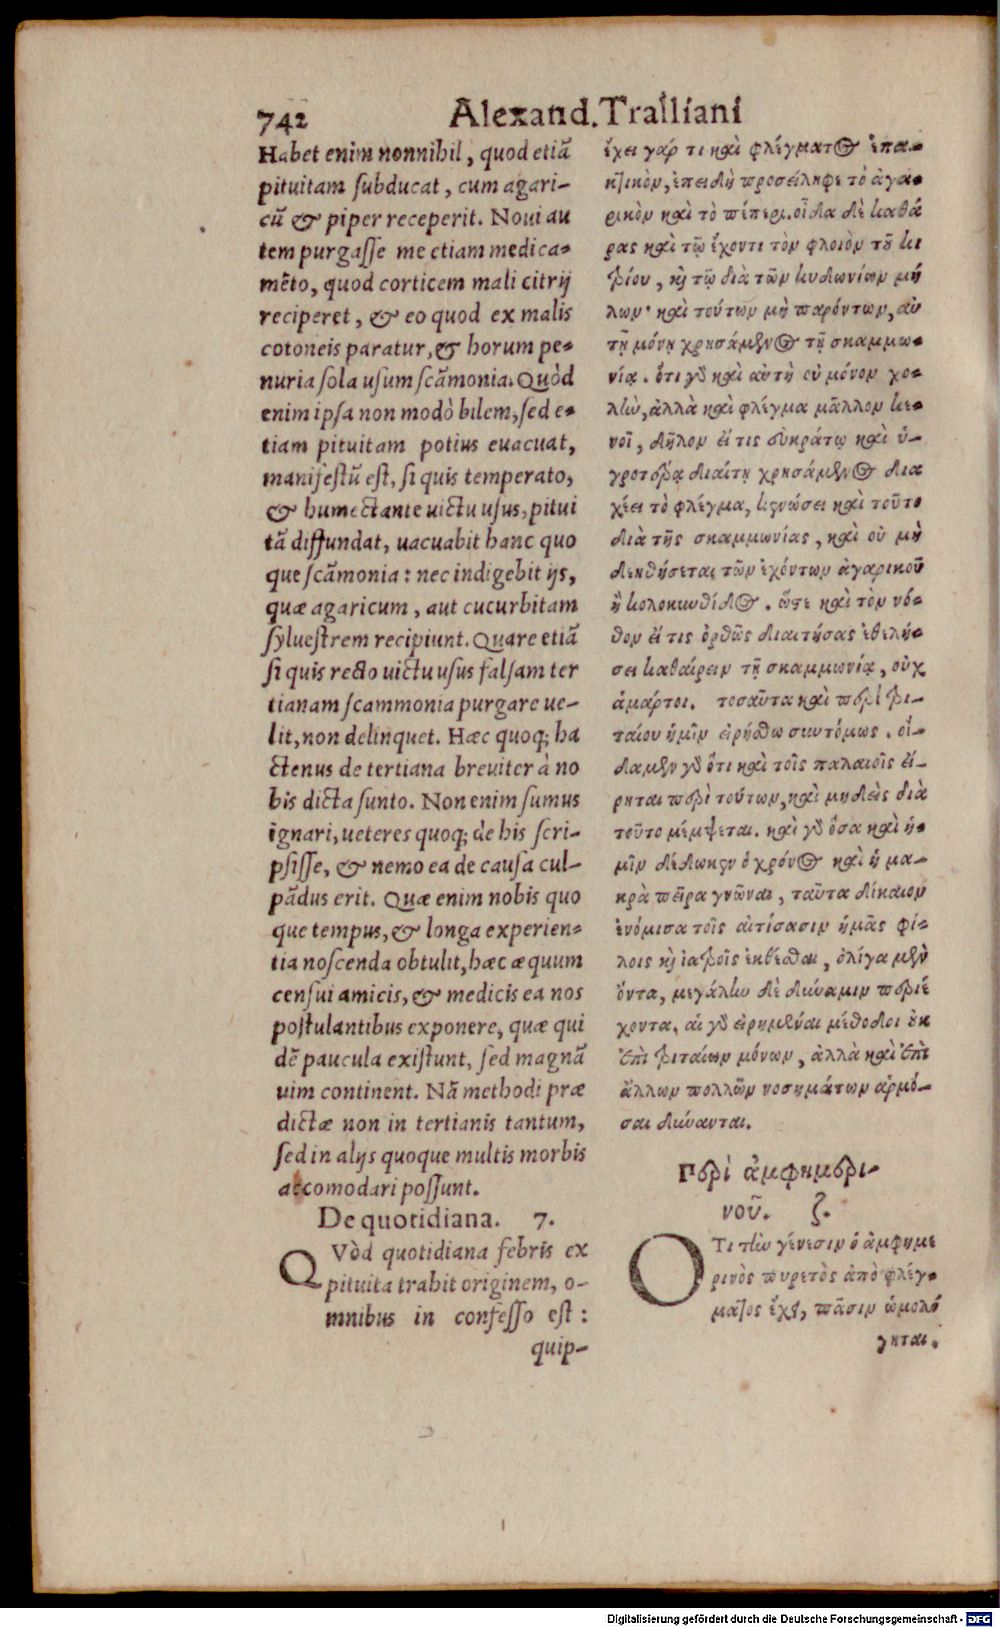 742 Alexand. Tralliani
Habet enim nonnihil, quod etiā
pituitam ſubducat, cum agari-
cū & piper receperit. Noui au
tem purgaſſe me etiam medica-
mēto, quod corticem mali citrij
reciperet, & eo quod ex malis
cotoneis paratur, & horum pe-
nuria ſola uſum ſcāmonia. Quòd
enim ipſa non modò bilem, ſed e-
tiam pituitam potius euacuat,
manifeſtū eſt, ſi quis temperato,
& humectante uictu uſus, pitui
tā diffundat, uacuabit hanc quo
que ſcāmonia: nec indigebit ijs,
quæ agaricum, aut cucurbitam
ſylueſtrem recipiunt. Quare etiā
ſi quis recto uictu uſus falſam ter
tianam ſcammonia purgare ue-
lit, non delinquet. Hæc quoq; ha
ctenus de tertiana breuiter à no
bis dicta ſunto. Non enim ſumus
ignari, ueteres quoq; de his ſcri-
pſiſſe, & nemo ea de cauſa cul-
pādus erit. Quæ enim nobis quo
que tempus, & longa experien-
tia noſcenda obtulit, hæc æquum
cenſui amicis, & medicis ea nos
poſtulantibus exponere, quæ qui
dē paucula exiſtunt, ſed magnā
uim continent. Nā methodi præ
dictæ non in tertianis tantum,
ſed in alijs quoque multis morbis
accomodari poſſunt.
De quotidiana. 7.
QVòd quotidiana febris ex
pituita trahit originem, o-
mnibus in confeſſo eſt:
quip-
ἔχει γάρ τι καὶ φλέγματος ἐπα-
κτικὸν, ἐπειδὴ προσείληφε τὸ ἀγα-
ρικὸν καὶ τὸ πέπερι. οἶδα δὲ καθά
ρας καὶ τῷ ἔχοντι τὸν φλοιὸν τοῦ κι
τρίου, καὶ τῷ διὰ τῶν κυδωνίων μή
λων· καὶ τούτων μὴ παρόντων, αὐ
τῇ μόνῃ χρησάμενος τῇ σκαμμω-
νίᾳ. ὅτι γὰρ καὶ αὐτὴ οὐ μόνον χο-
λὴν, ἀλλὰ καὶ φλέγμα μᾶλλον κε-
νοῖ, δῆλον εἴ τις εὐκράτῳ καὶ ὑ-
γροτέρᾳ διαίτῃ χρησάμενος δια
χέει τὸ φλέγμα, κενώσει καὶ τοῦτο
διὰ τῆς σκαμμωνίας, καὶ οὐ μὴ
δεηθήσεται τῶν ἐχόντων ἀγαρικοῦ
ἢ κολοκυνθίδος. ὥστε καὶ τὸν νό-
θον εἴ τις ὀρθῶς διαιτήσας ἐθελή-
σει καθαίρειν τῇ σκαμμωνίᾳ, οὐχ
ἁμάρτοι. τοσαῦτα καὶ περὶ τρι-
ταίου ἡμῖν εἰρήσθω συντόμως. οἴ-
δαμεν γὰρ ὅτι καὶ τοῖς παλαιοῖς εἴ-
ρηται περὶ τούτων, καὶ μηδεὶς διὰ
τοῦτο μέμψεται. καὶ γὰρ ὅσα καὶ ἡ-
μῖν δέδωκεν ὁ χρόνος καὶ ἡ μα-
κρὰ πεῖρα γνῶναι, ταῦτα δίκαιον
ἐνόμισα τοῖς αἰτίσασιν ἡμᾶς φί-
λοις καὶ ἰατροῖς ἐκθέσθαι, ὀλίγα μὲν
ὄντα, μεγάλην δὲ δύναμιν περιέ
χοντα. αἱ γὰρ εἰρημέναι μέθοδοι οὐκ
ἐπὶ τριταίων μόνων, ἀλλὰ καὶ ἐπὶ
ἄλλων πολλῶν νοσημάτων ἁρμό-
σαι δύνανται.
Περὶ ἀμφημερι-
νοῦ. ζ.
ΟΤι τὴν γένεσιν ὁ ἀμφημε
ρινὸς πυρετὸς ἀπὸ φλέγ-
ματος ἔχει, πᾶσιν ὡμολό
γηται.
Digitalisierung gefördert durch die Deutsche Forschungsgemeinschaft - DFG